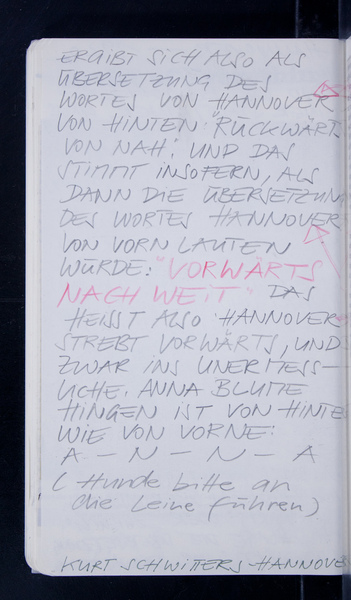 ERGIBT SICH ALSO ALS
ÜBERSETZUNG DES
WORTES VON HANNOVER
VON HINTEN: "RÜCKWÄRTS
VON NAH". UND DAS
STIMMT INSOFERN, ALS
DANN DIE ÜBERSETZUN
DES WORTES HANNOVER
VON VORN LAUTEN
WÜRDE: "VORWÄRTS
NACH WEIT". DAS
HEISST ALSO: HANNOVER
STREBT VORWÄRTS, UND
ZWAR INS UNERMESS-
LICHE. ANNA BLUME
HINGEN IST VON HINTE
WIE VON VORNE:
A - N - N - A
(Hunde bitte an
die Leine führen)
KURT SCHWITTERS - HANNOVE